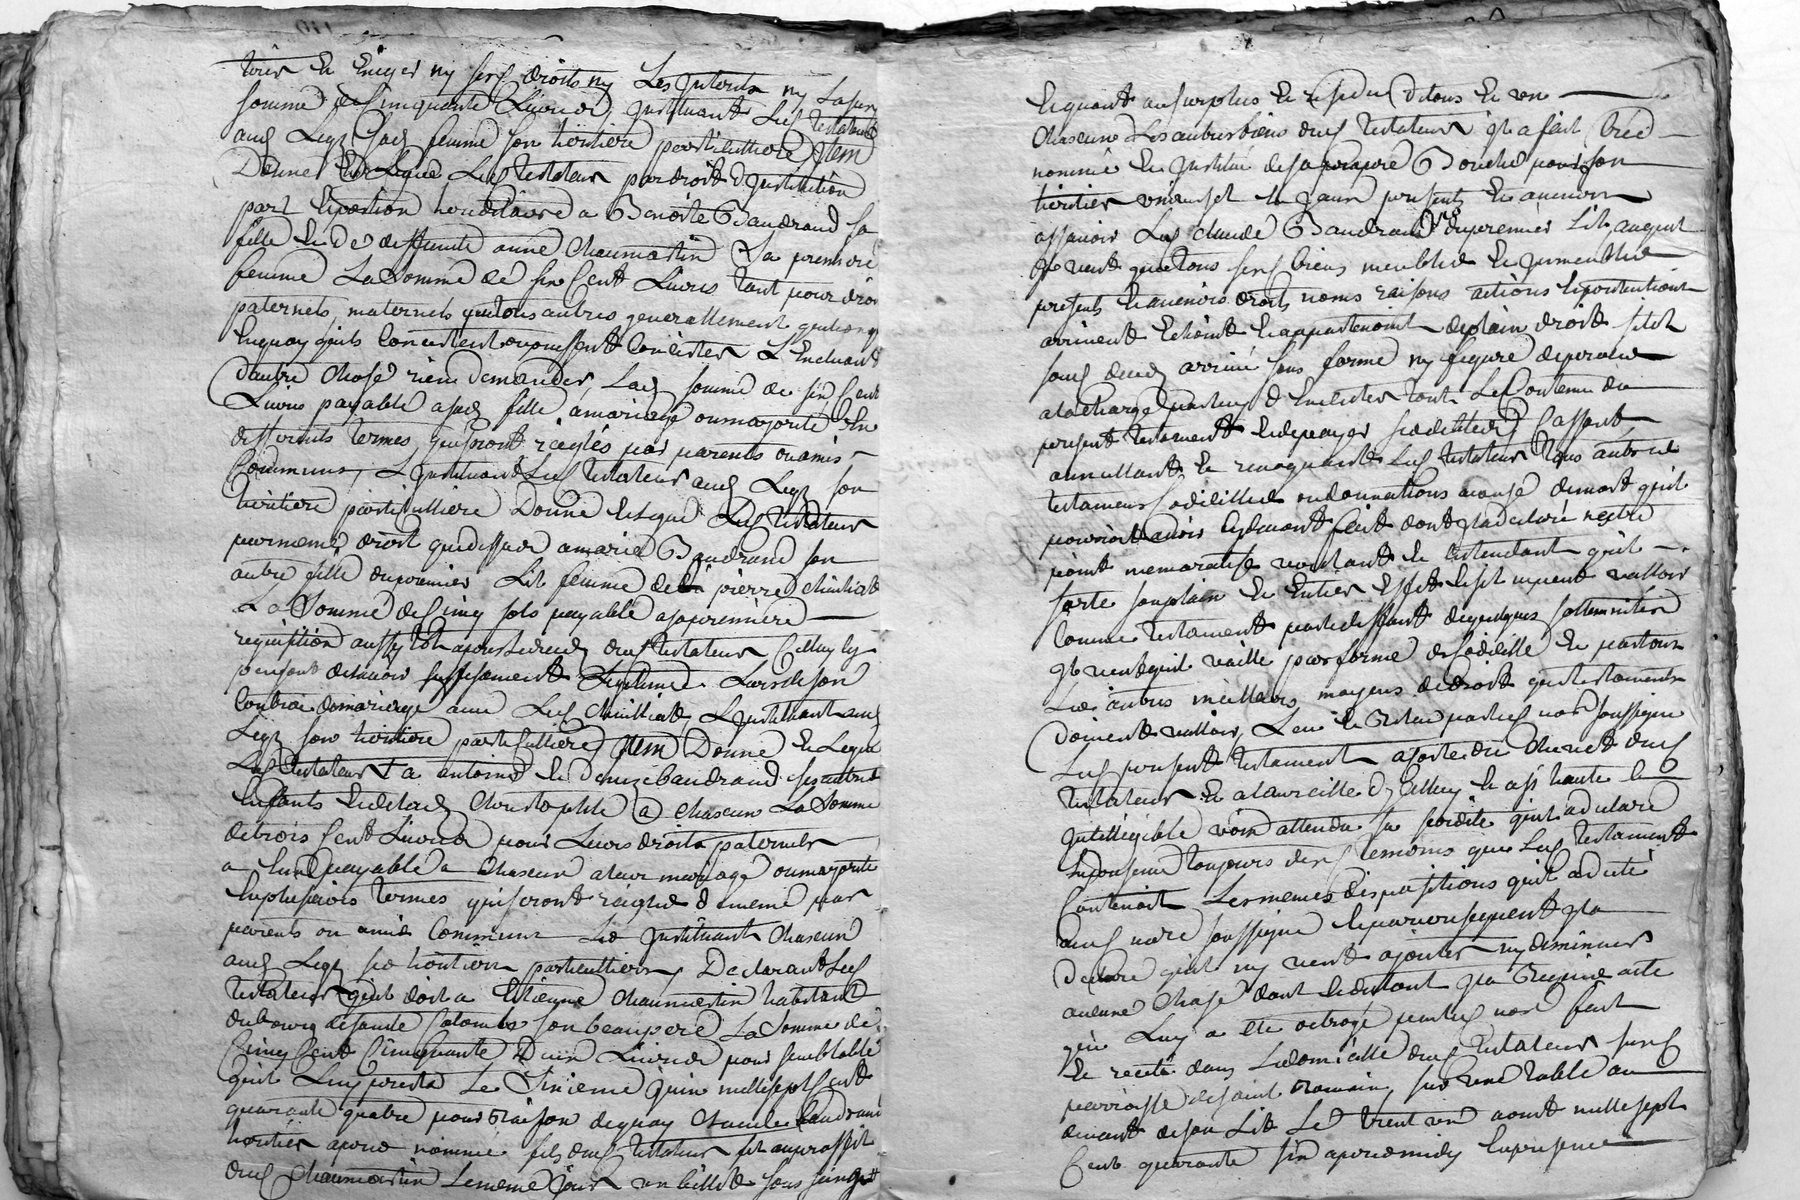 tório et Exiger ny sesd droits ny Les Intorets ny Lad
somme de Cinquante Livres, Instituant Led testateur
aud Legz sad femme son héritiere particulliere Item
Donne et Legue Led testateur par droit d'Institution
part et portion hereditaire a Benoite Baudrand sa
fille et de deffunte anne Chaumartin sa premiere
femme La Somme de six Cent Livres tant pour droits
paternels, maternels que tous autres generallement quelconq
En quoy quils Consistent ou puissent Consister L'Excluant
d'autre Chose rien demander, Lad somme de six Cent
Livres payable a sad fille a mariage ou majorité En
differents termes qui seront reglés par parents ou amis
Communs, L'Instituant Led testateur aud Legz son
héritiere particulliere Donne et Legue Led testateur
par meme droit que dessus a marie Baudrand son
autre fille du premier Lit femme de pierre Chuilliat
La Somme de Cinq sols payable a sa premiere
requisition aussy tot apres Le deced dud testateur Celluy cy
pensant Lavoir suffisament Legitimé Lors de son
Contrat de mariage avec Led Chuilliat L'Instituant aud
Legz son héritiere particulliere Item Donne et Legue
Led testateur a antoine et Denize baudrand ses autres
Enfants et de lad Christophle a Chascun La Somme
de trois Cent Livres pour Leurs droits paternels
a Eux payable a Chascun a leur mariage ou majorité
En plusieurs termes qui seront reiglés de meme par
parents ou amis Communs Les Instituant Chascun
aud Legz ses héritiers particulliers, Declarant Led
testateur quil doit a Etienne Chaumartin habitant
du bourg de sainte Colombe son beaupere La Somme de
Cinq Cent Cinquante Livres pour semblable
quil Luy presta Le sixieme juin mille sept Cent
quarante quatre pour raison de quoy Claude baudrand
héritier apres nommé fils dud testateur fit au proffit
dud Chaumartin Le meme jour un billet sous seing
Et quant au surplus et residu de tous et un
Chascuns Les autres biens dud testateur Il a fait Créé
nommé et Institué de sa propre Bouche pour son
héritier universel Les jours presents et avenir
assavoir Led Claude Baudrand du premier Lit auquel
Il veut que tous sesd biens meubles et Immeubles
presents et avenirs droits noms raisons actions et pretentions
arrivent Echoient et appartenoint de plain droit sitot
sond deced arrivé sans forme ny figure de proces
a la Charge par luy d'Executer tout Le Contenu du
present testament et de payer ses dettes Cassant,
annullant et revoquant Led testateur tous autres
testamens Codicilles ou donnations a cause de mort quil
pourroit avoir Cydevant fait dont Il a declaré nestre
point memoratif voulant et Entendant quil
sorte son plain et Entier Effet et sil ne peut valloir
Comme testament par deffaut de quelques sollemnités
Il veut quil vaille par forme de Codicille et par tous
Les autres meilleurs moyens de droit que testaments
doivent valloir, Leu et relu par led note soussigné
Led present testament a Coste du Chevet dud
testateur et a l'oreille d'Iceluy et a si haute et
Inteligible voix attendu sa surdité quil a declaré
En presence toujours desd temoins que Led testament
Contenoit Les memes dispositions quil a dicté
aud note soussigné
declare quil ny veut ajouter ny diminuer
aucune Chose dont et du tout Il a Requis acte
qui Luy a eté octroyé par led note fait
et recité dans Le domicille dud testateur susd
parroisse de saint Romain, sur une table au
devant de son Lit Le trent un aoust mille sept
Cent quarante six apres midy En presence